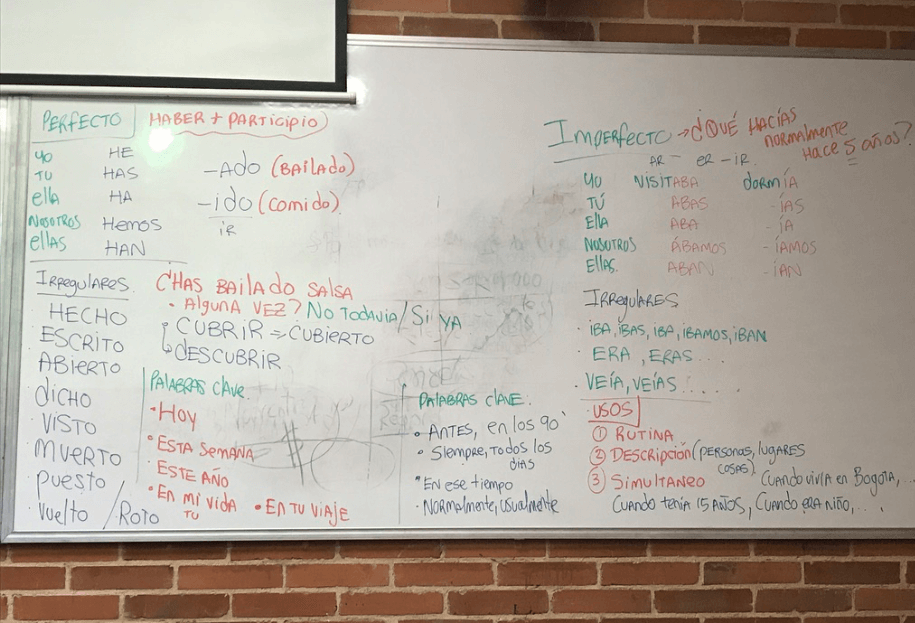 PERFECTO HABER + PARTICIPIO
YO HE
TU HAS
ella HA
NOSOTROS Hemos
ellas HAN
-Ado (BAILADO)
-ido (comido)
iR
IRRegulaRes
HECHO
ESCRITO
ABierto
dicHo
· VisTo
MUERTO
puesto
· Vuelto / Roto
¿HAS BAILADO SALSA
· Alguna VEZ? NO TODAVIA / Si YA
CUBRIR => CUBIERTO
DESCUBRIR
PAlABRAS clAve
· Hoy
· ESTA SEMANA
· ESTE AÑO
· En mi VIDA
TU
· EN TU VIAJE
PAlABRAS clAVE:
· ANTES, en los 90'
· Siempre, Todos los
dias
· EN ese tiempo
· Normalmente, usualmente
IMPERFECTO → ¿QUÉ HACÍAS
NORMALMENTE
HACE 5 años?
AR - eR - iR.
YO VISITABA dormÍA
TÚ ABAS - ÍAS
EllA ABA - ÍA
NOSOTROS ÁBAMOS - ÍAMOS
EllAS. ABAN - ÍAN
IRRegulaRes
· iBA, iBAS, iBA, iBAMOS, iBAN
· ERA, ERAS....
· VEÍA, VEÍAS......
· USOS
① RUTINA
② DESCRIPCIÓN (PERSONAS, lugARES
COSAS)
③ SIMULTANEO CUANDO VIVÍA en Bogotá,...
CUANDO tenía 15 AÑOS, CUANDO ERA NIÑO,...